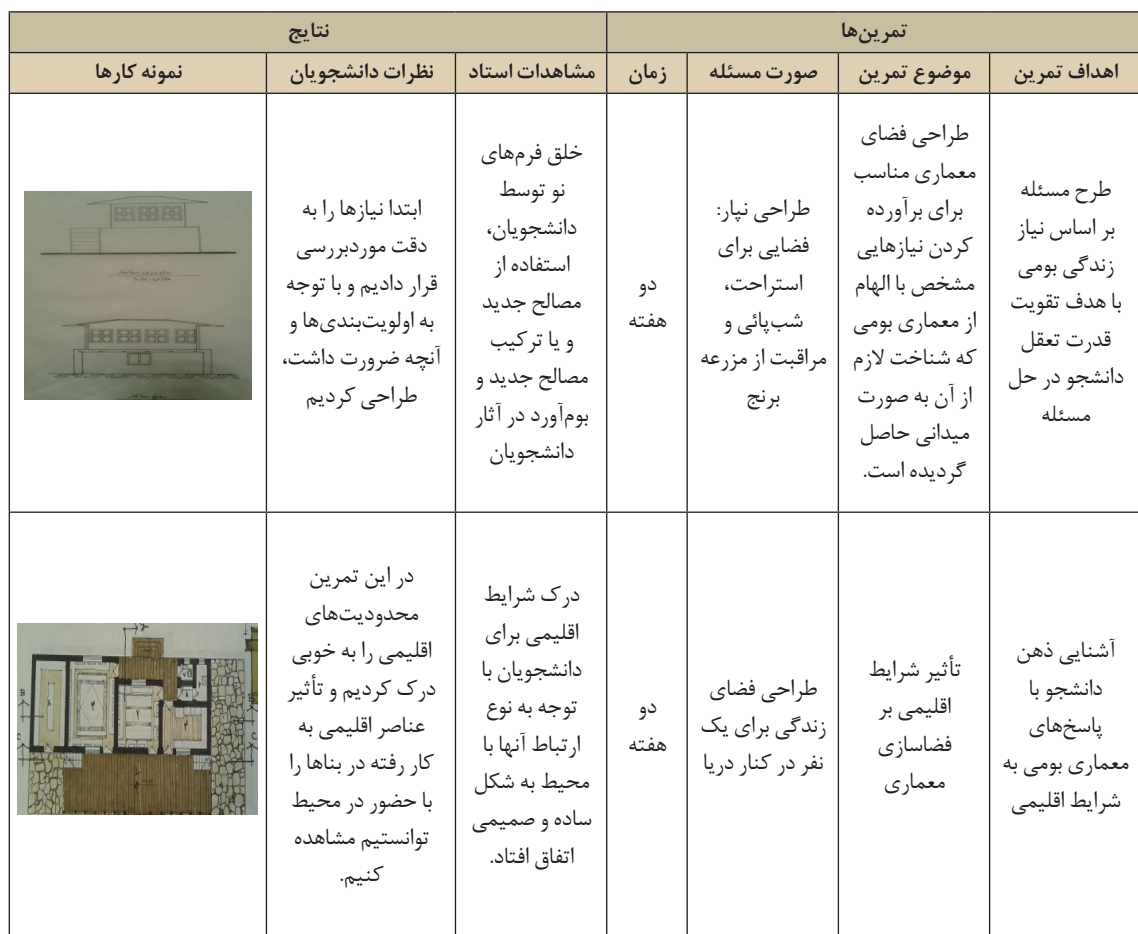 تمرین‌ها
نتایج
اهداف تمرین
موضوع تمرین
صورت مسئله
زمان
مشاهدات استاد
نظرات دانشجویان
نمونه کارها
طرح مسئله
بر اساس نیاز
زندگی بومی
با هدف تقویت
قدرت تعقل
دانشجو در حل
مسئله
طراحی فضای
معماری مناسب
برای برآورده
کردن نیازهایی
مشخص با الهام
از معماری بومی
که شناخت لازم
از آن به صورت
میدانی حاصل
گردیده است.
طراحی نپار:
فضایی برای
استراحت،
شب‌پائی و
مراقبت از مزرعه
برنج
دو
هفته
خلق فرم‌های
نو توسط
دانشجویان،
استفاده از
مصالح جدید
و یا ترکیب
مصالح جدید و
بوم‌آورد در آثار
دانشجویان
ابتدا نیازها را به
دقت موردبررسی
قرار دادیم و با توجه
به اولویت‌بندی‌ها و
آنچه ضرورت داشت،
طراحی کردیم
آشنایی ذهن
دانشجو با
پاسخ‌های
معماری بومی به
شرایط اقلیمی
تأثیر شرایط
اقلیمی بر
فضاسازی
معماری
طراحی فضای
زندگی برای یک
نفر در کنار دریا
دو
هفته
درک شرایط
اقلیمی برای
دانشجویان با
توجه به نوع
ارتباط آنها با
محیط به شکل
ساده و صمیمی
اتفاق افتاد.
در این تمرین
محدودیت‌های
اقلیمی را به خوبی
درک کردیم و تأثیر
عناصر اقلیمی به
کار رفته در بناها را
با حضور در محیط
توانستیم مشاهده
کنیم.